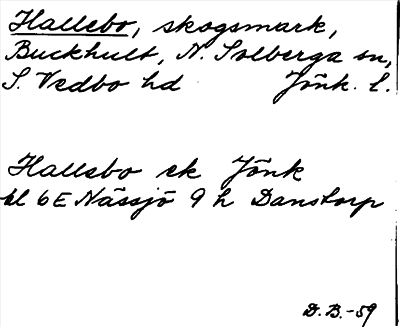 Hallebo, skogsmark,
Buckhult, N. Solberga sn,
S. Vedbo hd Jönk. l.
Hallebo ek Jönk
bl 6E Nässjö 9 h Danstorp
D.B.-59